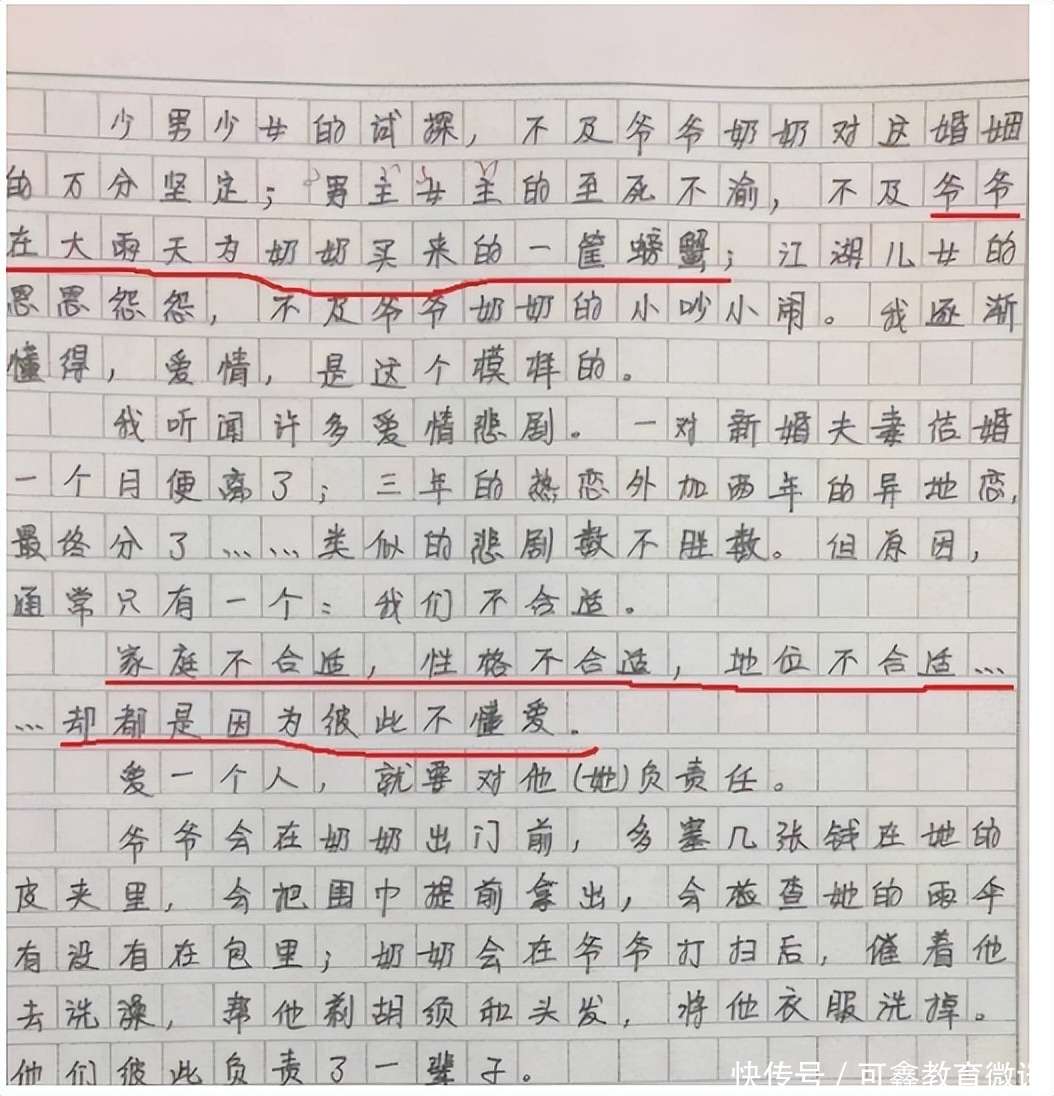 少男少女的试探，不及爷爷奶奶对这婚姻
的万分坚定；男主女主的至死不渝，不及爷爷
在大雨天为奶奶买来的一筐螃蟹；江湖儿女的
恩恩怨怨，不及爷爷奶奶的小吵小闹。我逐渐
懂得，爱情，是这个模样的。
我听闻许多爱情悲剧。一对新婚夫妻结婚
一个月便离了；三年的热恋外加两年的异地恋，
最终分了……类似的悲剧数不胜数。但原因，
通常只有一个：我们不合适。
家庭不合适，性格不合适，地位不合适…
…却都是因为彼此不懂爱。
爱一个人，就要对他(她)负责任。
爷爷会在奶奶出门前，多塞几张钱在她的
皮夹里，会把围巾提前拿出，会检查她的雨伞
有没有在包里；奶奶会在爷爷打扫后，催着他
去洗澡，帮他剃胡须和头发，将他衣服洗掉。
他们彼此负责了一辈子。
快传号 / 可鑫教育微课